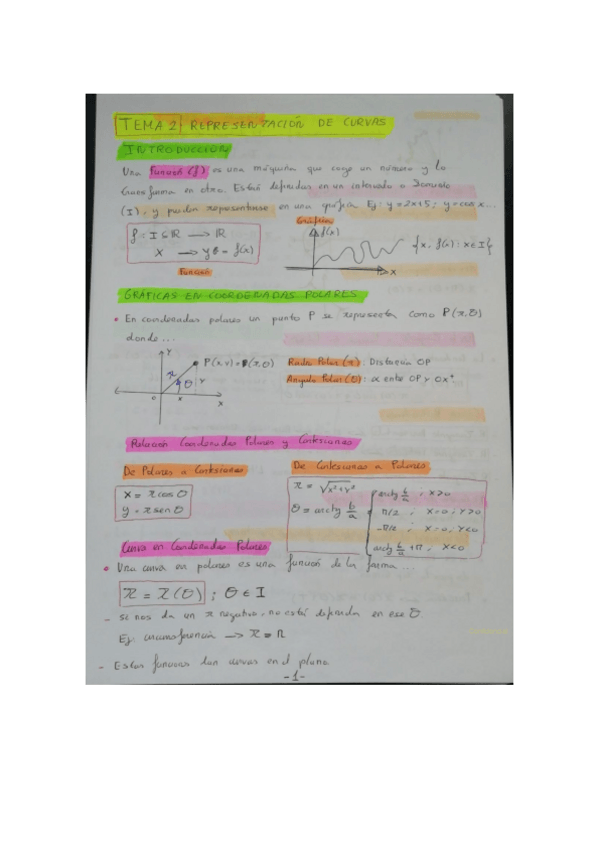 TEMA 2 | REPRESENTACIÓN DE CURVAS
INTRODUCCIÓN
Una función (f) es una máquina que coge un número y lo
transforma en otro. Están definidas en un intervalo o Dominio
(I), y pueden representarse en una gráfica Ej: y=2x+5; y=cos x...
f: I ⊆ ℝ → ℝ
x → y = f(x)
Función
Gráfica
f(x)
x
{x, f(x) : x ∈ I}
GRÁFICAS EN COORDENADAS POLARES
• En coordenadas polares un punto P se representa como P(r, θ)
donde...
Y
P(x,y) = P(r,θ)
r
θ
y
o
x
X
Radio Polar (r): Distancia OP
Angulo Polar (θ): α ente OP y OX⁺
Relación Coordenadas Polares y Cartesianas
De Polares a Cartesianas
x = r cos θ
y = r sen θ
De Cartesianas a Polares
r = √x²+y²
θ = arctg b/a
arctg b/a ; x>0
π/2 ; x=0; y>0
-π/2 ; x=0, y<0
arctg b/a + π ; x<0
Curva en Coordenadas Polares
• Una curva en polares es una función de la forma...
r = r(θ) ; θ ∈ I
- Si nos da un r negativo, no está definida en ese θ
Ej: circunsferencia → r = R
- Estas funciones dan curvas en el plano.
-1-